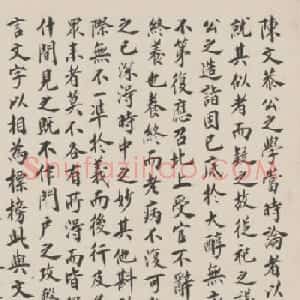 陳文恭公之學當時論者以
就其似者而疑之故從祀之
公之造詣固已底於大醇無
不第後應召北上受官不辭
終養也養終而老病不復可
之已深得時中之妙其他斟
際無不一準於我而後行及
眾来者莫不各有所得而皆
什間見之既不作門户之攻
言文字以相為標榜此與文